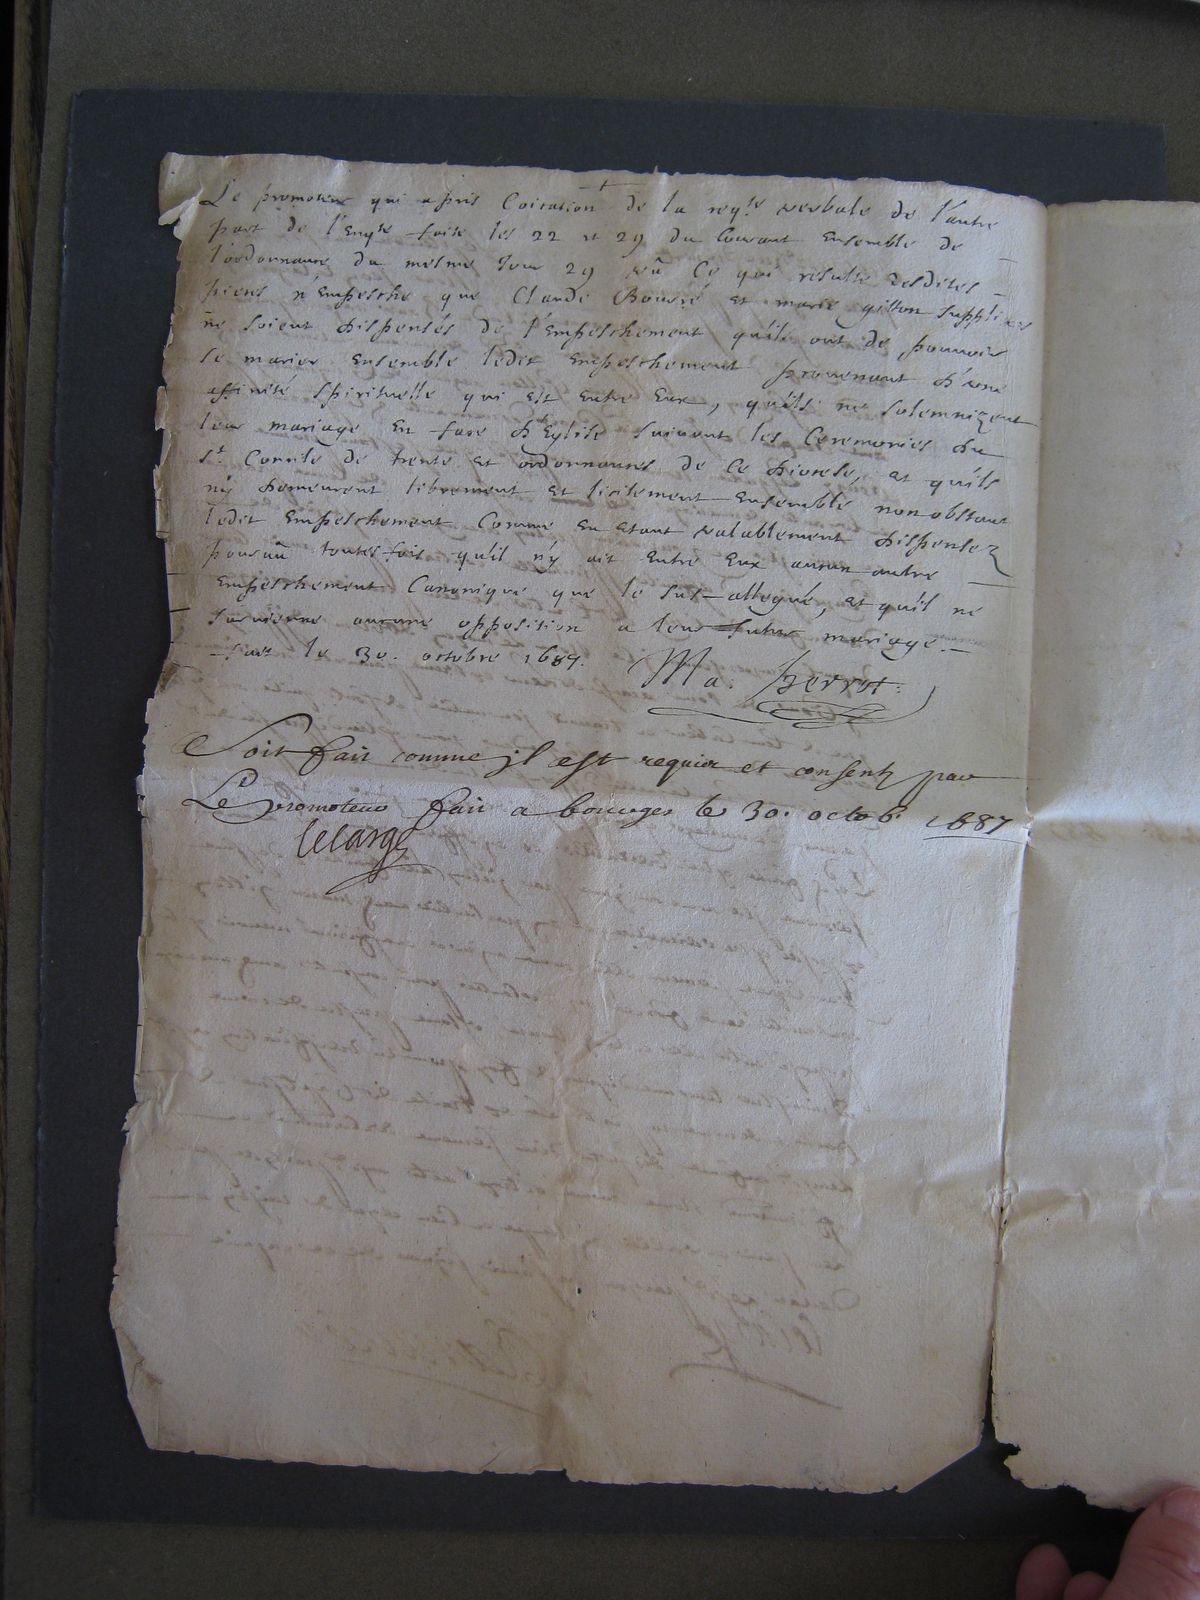 Le promoteur qui a pris Coication de la reqte verbale de l'autre
part de l'Enqte faite les 22 et 29 du Courant Ensemble de
l'ordonnance du mesme Jour 29 vû Ce qui resulte desdites
pieces n'Empesche que Claude Bourré et marie gitton suppliants
ne soient dispensés de l'Empeschement qu'ils ont de pouvoir
se marier Ensemble ledit Empeschement provenant d'une
affinité spirituelle qui est Entre Eux, qu'ils ne solemnizent
leur mariage En face d'Eglise suivant les Ceremonies du
st Concile de trente et ordonnances de Ce diocese, et qu'ils
n'y demeurent librement et licitement Ensemble nonobstant
ledit Empeschement Comme En Etant valablement dispensez
pourvû toutesfois qu'il n'y ait Entre Eux aucun autre
Empeschement Canonique que le sus-allegué, et qu'il ne
survienne aucune opposition a leur futur mariage.
fait le 30. octobre 1687. Ma. Perrot.
Soit fait comme jl est requis et consenti par
Le Promoteur fait a bourges le 30. octob. 1687
lelarge